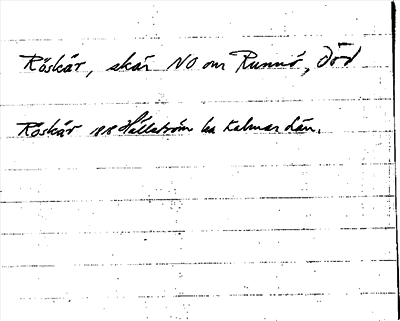 Röskär, skär NO om Runnö, Död
Röskär 1818 Hällström ka Kalmar Län.